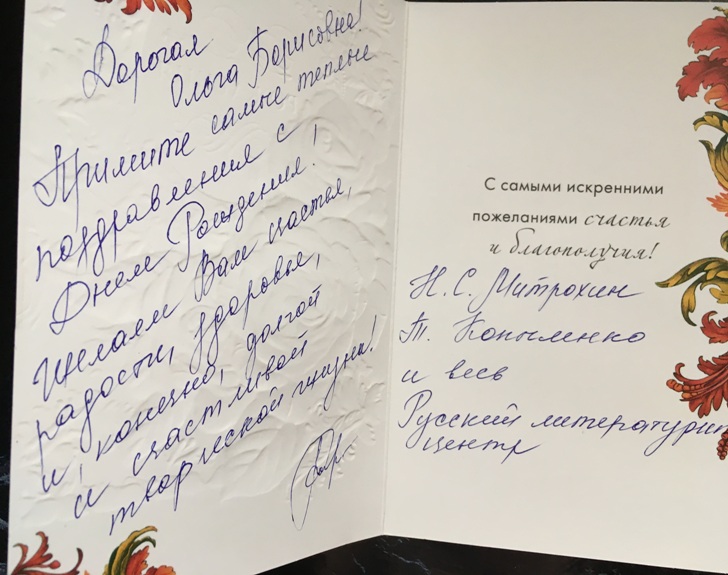 Дорогая
Ольга Борисовна!
Примите самые теплые
поздравления с
Днем Рождения!
Желаем Вам счастья,
радости, здоровья,
и, конечно, долгой
и счастливой
творческой жизни!
С самыми искренними
пожеланиями счастья
и благополучия!
Н.С. Митрохин
Т. Копыленко
и весь
Русский литературн
центр